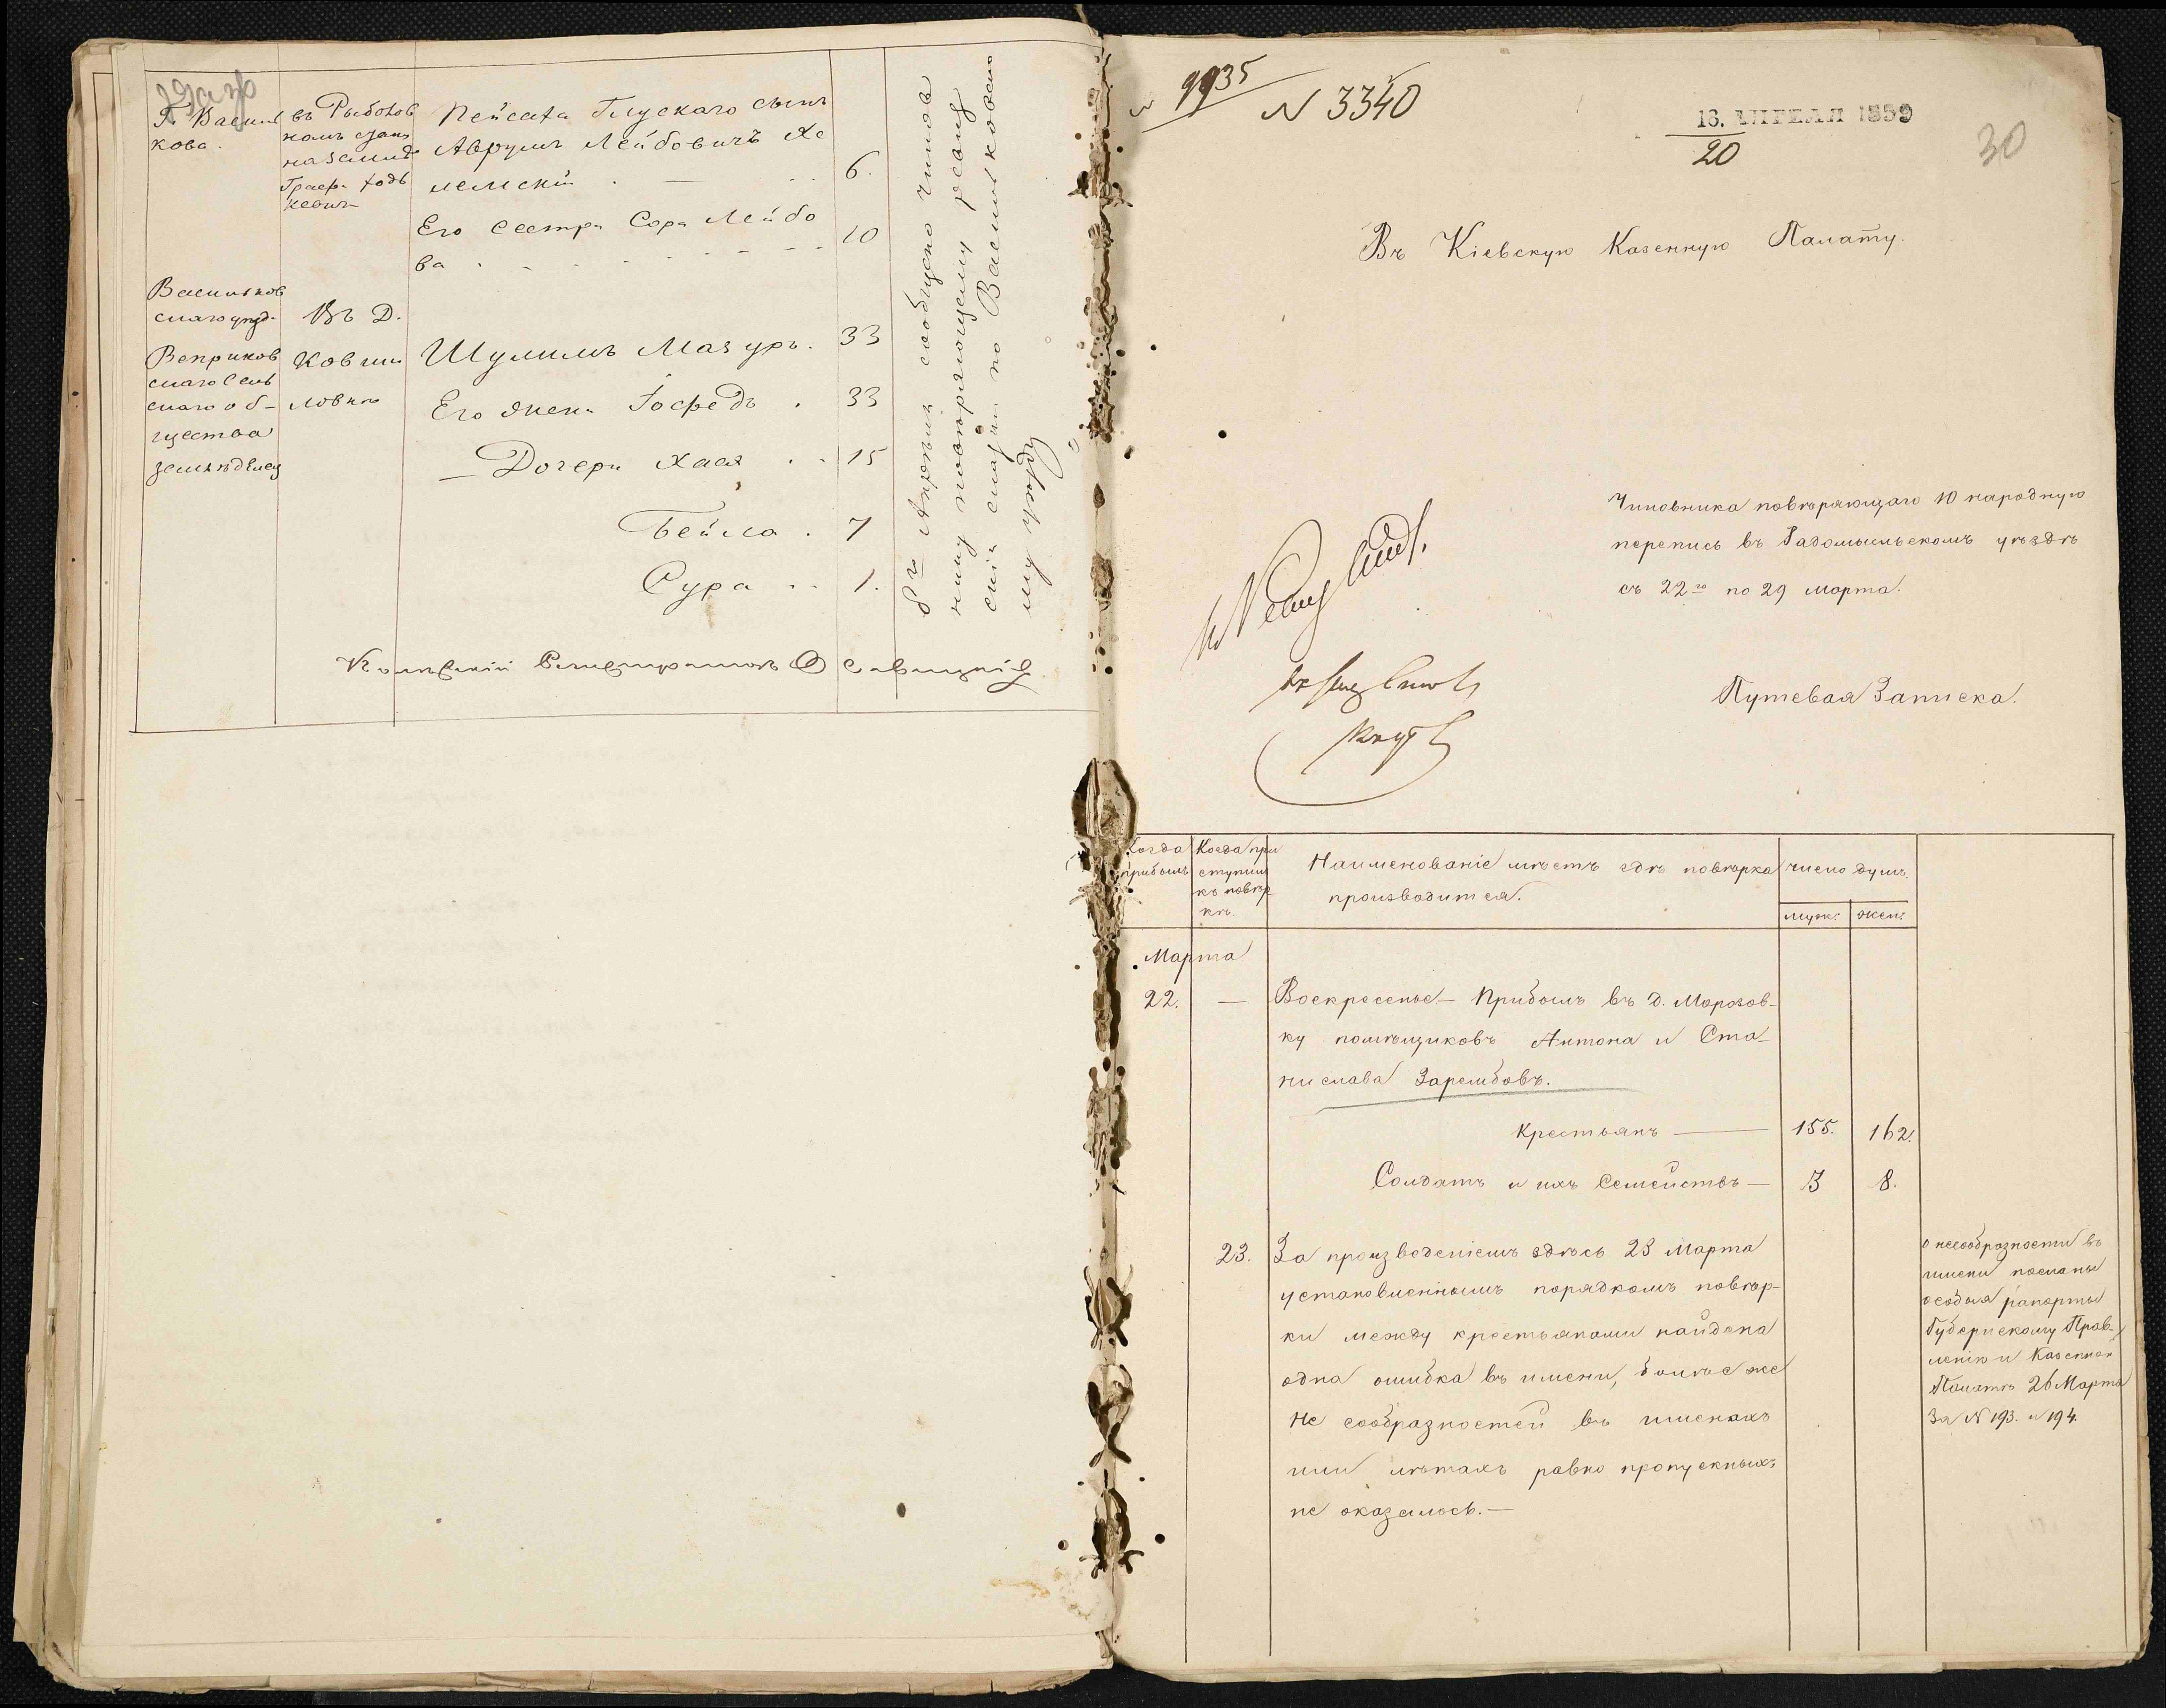 Г. Василь
кова.
въ Рыболов
комъ
Пейсаха Глускаго сынъ
Аврумъ Лейбовичъ Хе
лемскій 6.
Его Сестра Сора Лейбо
ва 10
Васильков
скаго уѣзд.
Веприков
скаго Сель
скаго об-
щества
земледѣлец
Въ Д.
Ковша
ловкѣ
Шулимъ Мазуръ. 33
Его жена Іосфедъ . 33
— Дочери Хася . . 15
Бейла . 7
Сура . . 1.
8го Апрѣля сообщено чинов
нику повѣряющему ревиз
скія сказки по Васильковско
му уѣзду
№ 3340
16. АПРЕЛЯ 1859
20
30
Въ Кіевскую Казенную Палату.
Чиновника повѣряющаго 10 народную
перепись въ Радомысльскомъ уѣздѣ
съ 22го по 29 марта.
Путевая Записка.
Когда
прибылъ
Когда при
ступилъ
къ повѣр
кѣ.
Наименованіе мѣстъ гдѣ повѣрка
производится.
число душъ.
муж: жен:
Марта
22. — Воскресенье — Прибылъ въ д. Морозов-
ку помѣщиковъ Антона и Ста-
нислава Зарембовъ.
Крестьянъ — 155. 162.
Солдатъ и ихъ Семействъ — 3 8.
23. За произведеніемъ здѣсь 23 Марта
установленнымъ порядкомъ повѣр-
ки между крестьянами найдена
одна ошибка въ имени, болѣе же
не сообразностей въ именахъ
или лѣтахъ равно пропускныхъ
не оказалось. —
о несообразности въ
имени посланы
особыя рапорты
Губернскому Прав-
ленію и Казенной
Палатѣ 26 Марта
За № 193. и 194.